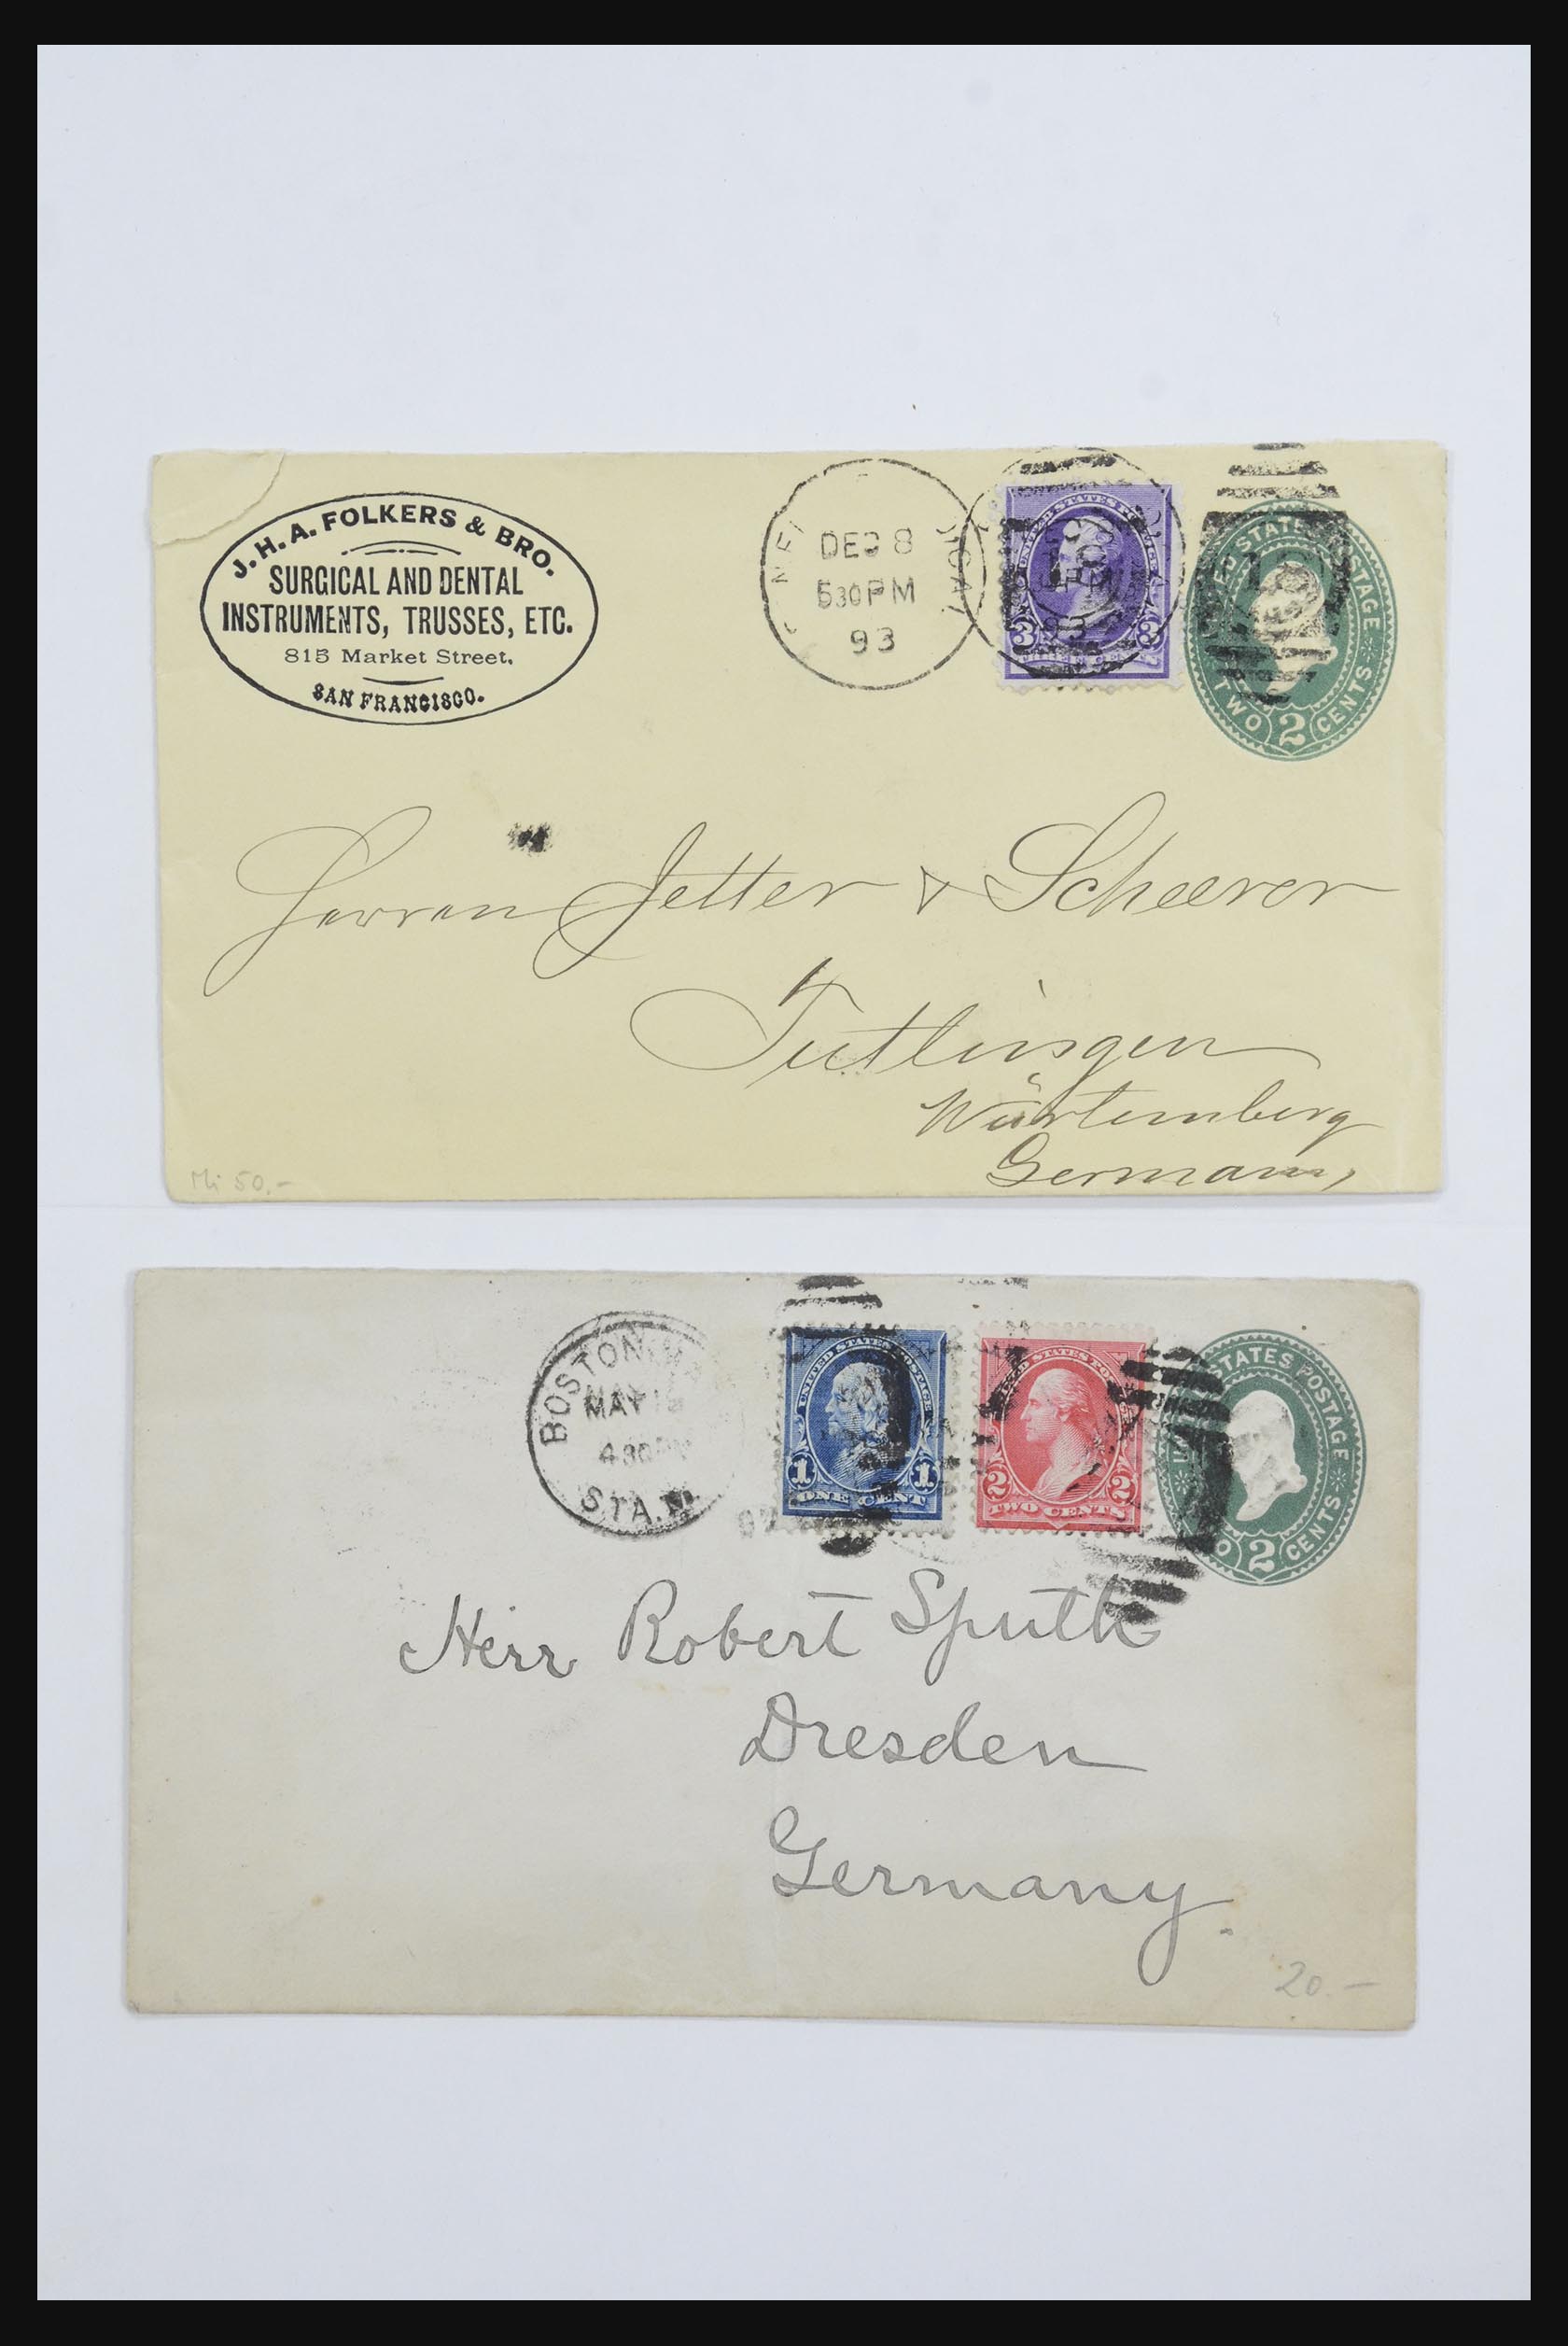 J. H. A. FOLKERS & BRO.
SURGICAL AND DENTAL
INSTRUMENTS, TRUSSES, ETC.
815 Market Street,
SAN FRANCISCO.
DEC 8
530PM
93
UNITED STATES POSTAGE
3 3
STATES POSTAGE
TWO 2 CENTS
Herren Jetter & Scheerer
Tutlingen
Würtemberg
Germany
Mi 50.-
BOSTON, MA
MAY
430PM
STA.
UNITED STATES POSTAGE
1 1
ONE CENT
UNITED STATES POSTAGE
2 2
TWO CENTS
STATES POSTAGE
2 CENTS
Herr Robert Sputh
Dresden
Germany.
20.-